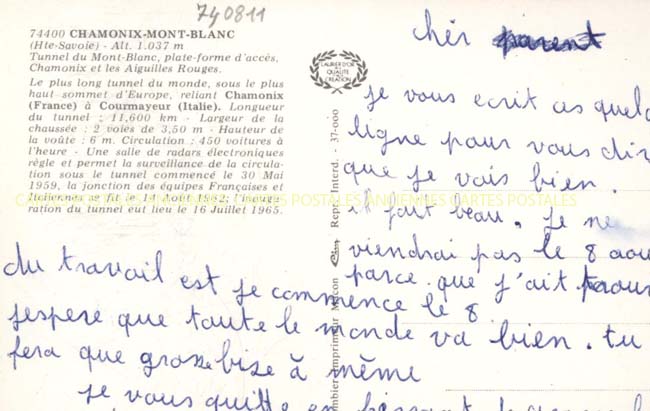 740811
74400 CHAMONIX-MONT-BLANC
(Hte-Savoie) - Alt. 1.037 m
Tunnel du Mont-Blanc, plate-forme d'accès,
Chamonix et les Aiguilles Rouges.
Le plus long tunnel du monde, sous le plus
haut sommet d'Europe, reliant Chamonix
(France) à Courmayeur (Italie). Longueur
du tunnel : 11,600 km - Largeur de la
chaussée : 2 voies de 3,50 m - Hauteur de
la voûte : 6 m. Circulation : 450 voitures à
l'heure - Une salle de radars électroniques
règle et permet la surveillance de la circula-
tion sous le tunnel commencé le 30 Mai
1959, la jonction des équipes Françaises et
Italiennes se fit le 14 Août 1962; l'inaugu-
ration du tunnel eut lieu le 16 Juillet 1965.
LAURIER D'OR
QUALITE
CREATION
Repr. Interdi. - 37-000
Imprimeur Macon
CARTES POSTALES ANCIENNES CARTES POSTALES
chèr parent
je vous ecrit ces quelq
ligne pour vous dir
que je vais bien.
il fait beau. je ne
viendrai pas le 8 aou
parce que j'ait trouv
du travail est je commence le 8
j'espere que toute le monde va bien. tu
fera que grosse bise à même
je vous quitte en